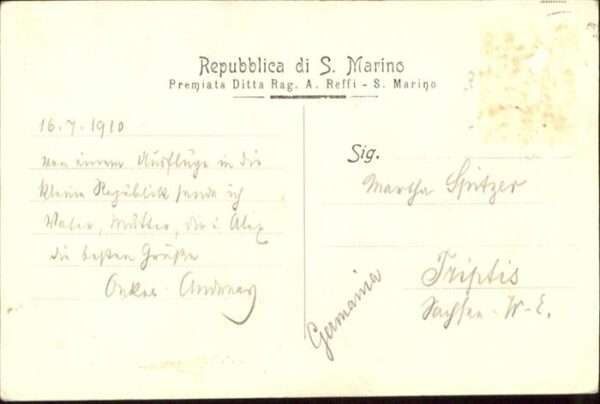 Repubblica di S. Marino
Premiata Ditta Rag. A. Reffi - S. Marino
16.7.1910
Von einem Ausfluge in die
kleine Republick sende ich
Vater, Mutter, dir u. Alex
die besten Grüße
Onkel
Sig.
Martha Spitzer
Triptis
Sachsen-W-E.
Germania